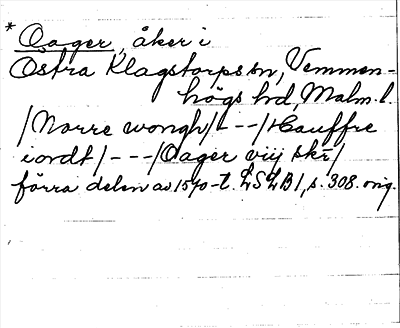 * Qager, åker i
Östra Klagstorps sn, Vemmen-
högs hd, Malm. l.
/Norre wongh/ - - - /Hauffre
iordt/ - - - /Qager viij skr/
förra delen av 1570-t. LSLB1, s. 308. orig.